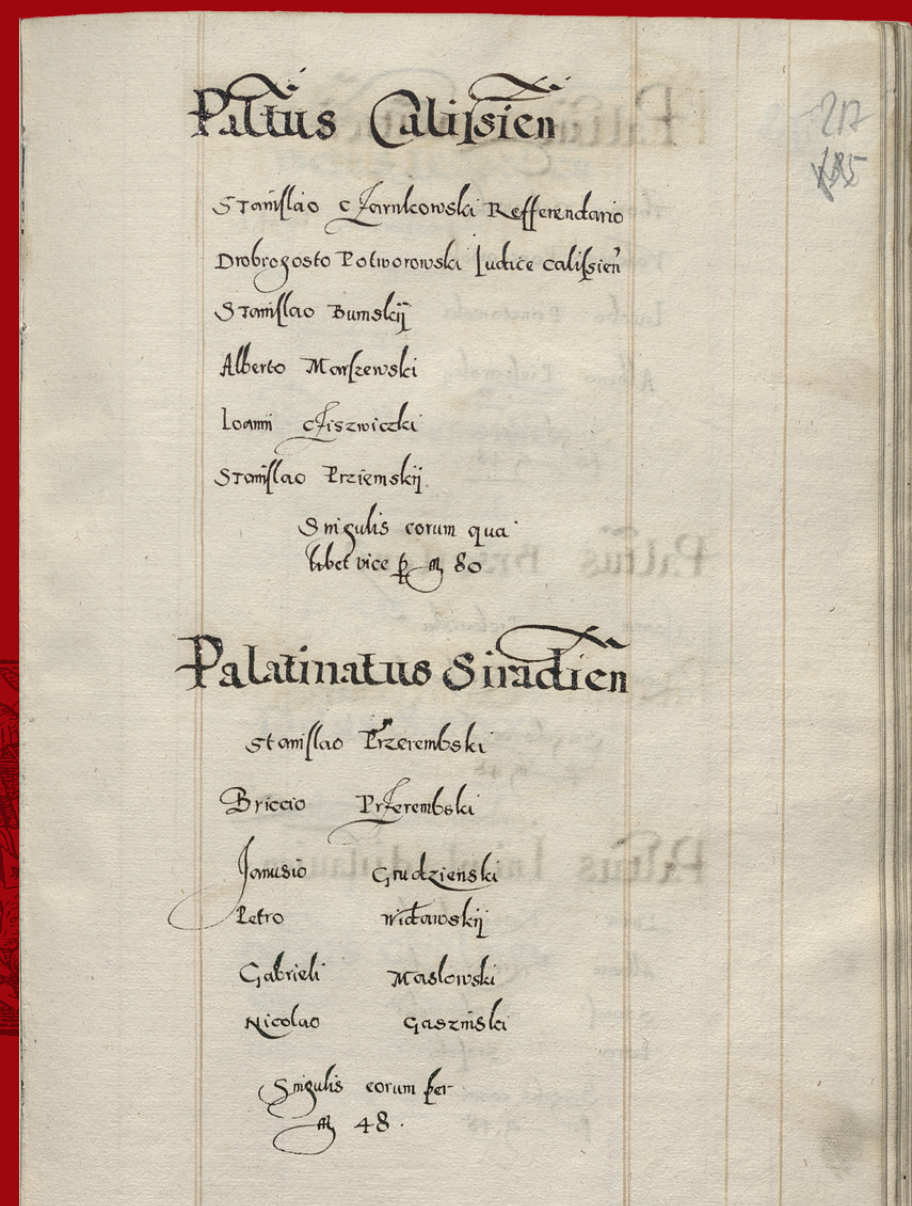 Paltus Calissien
217
185
Stanislao Czarnkowski Refferendario
Drobrogosto Potworowski Iudice calissien
Stanislao Bumskij
Alberto Marszewski
Ioanni Cziszwiczki
Stanislao Prziemskij
Singulis eorum qua
libet vice p m 80
Palatinatus Siradien
Stanislao Przerembski
Briccio Przerembski
Janusio Grudzienski
Petro widawskij
Gabrieli Maslowski
Nicolao Gaszinski
Singulis eorum per
m 48.